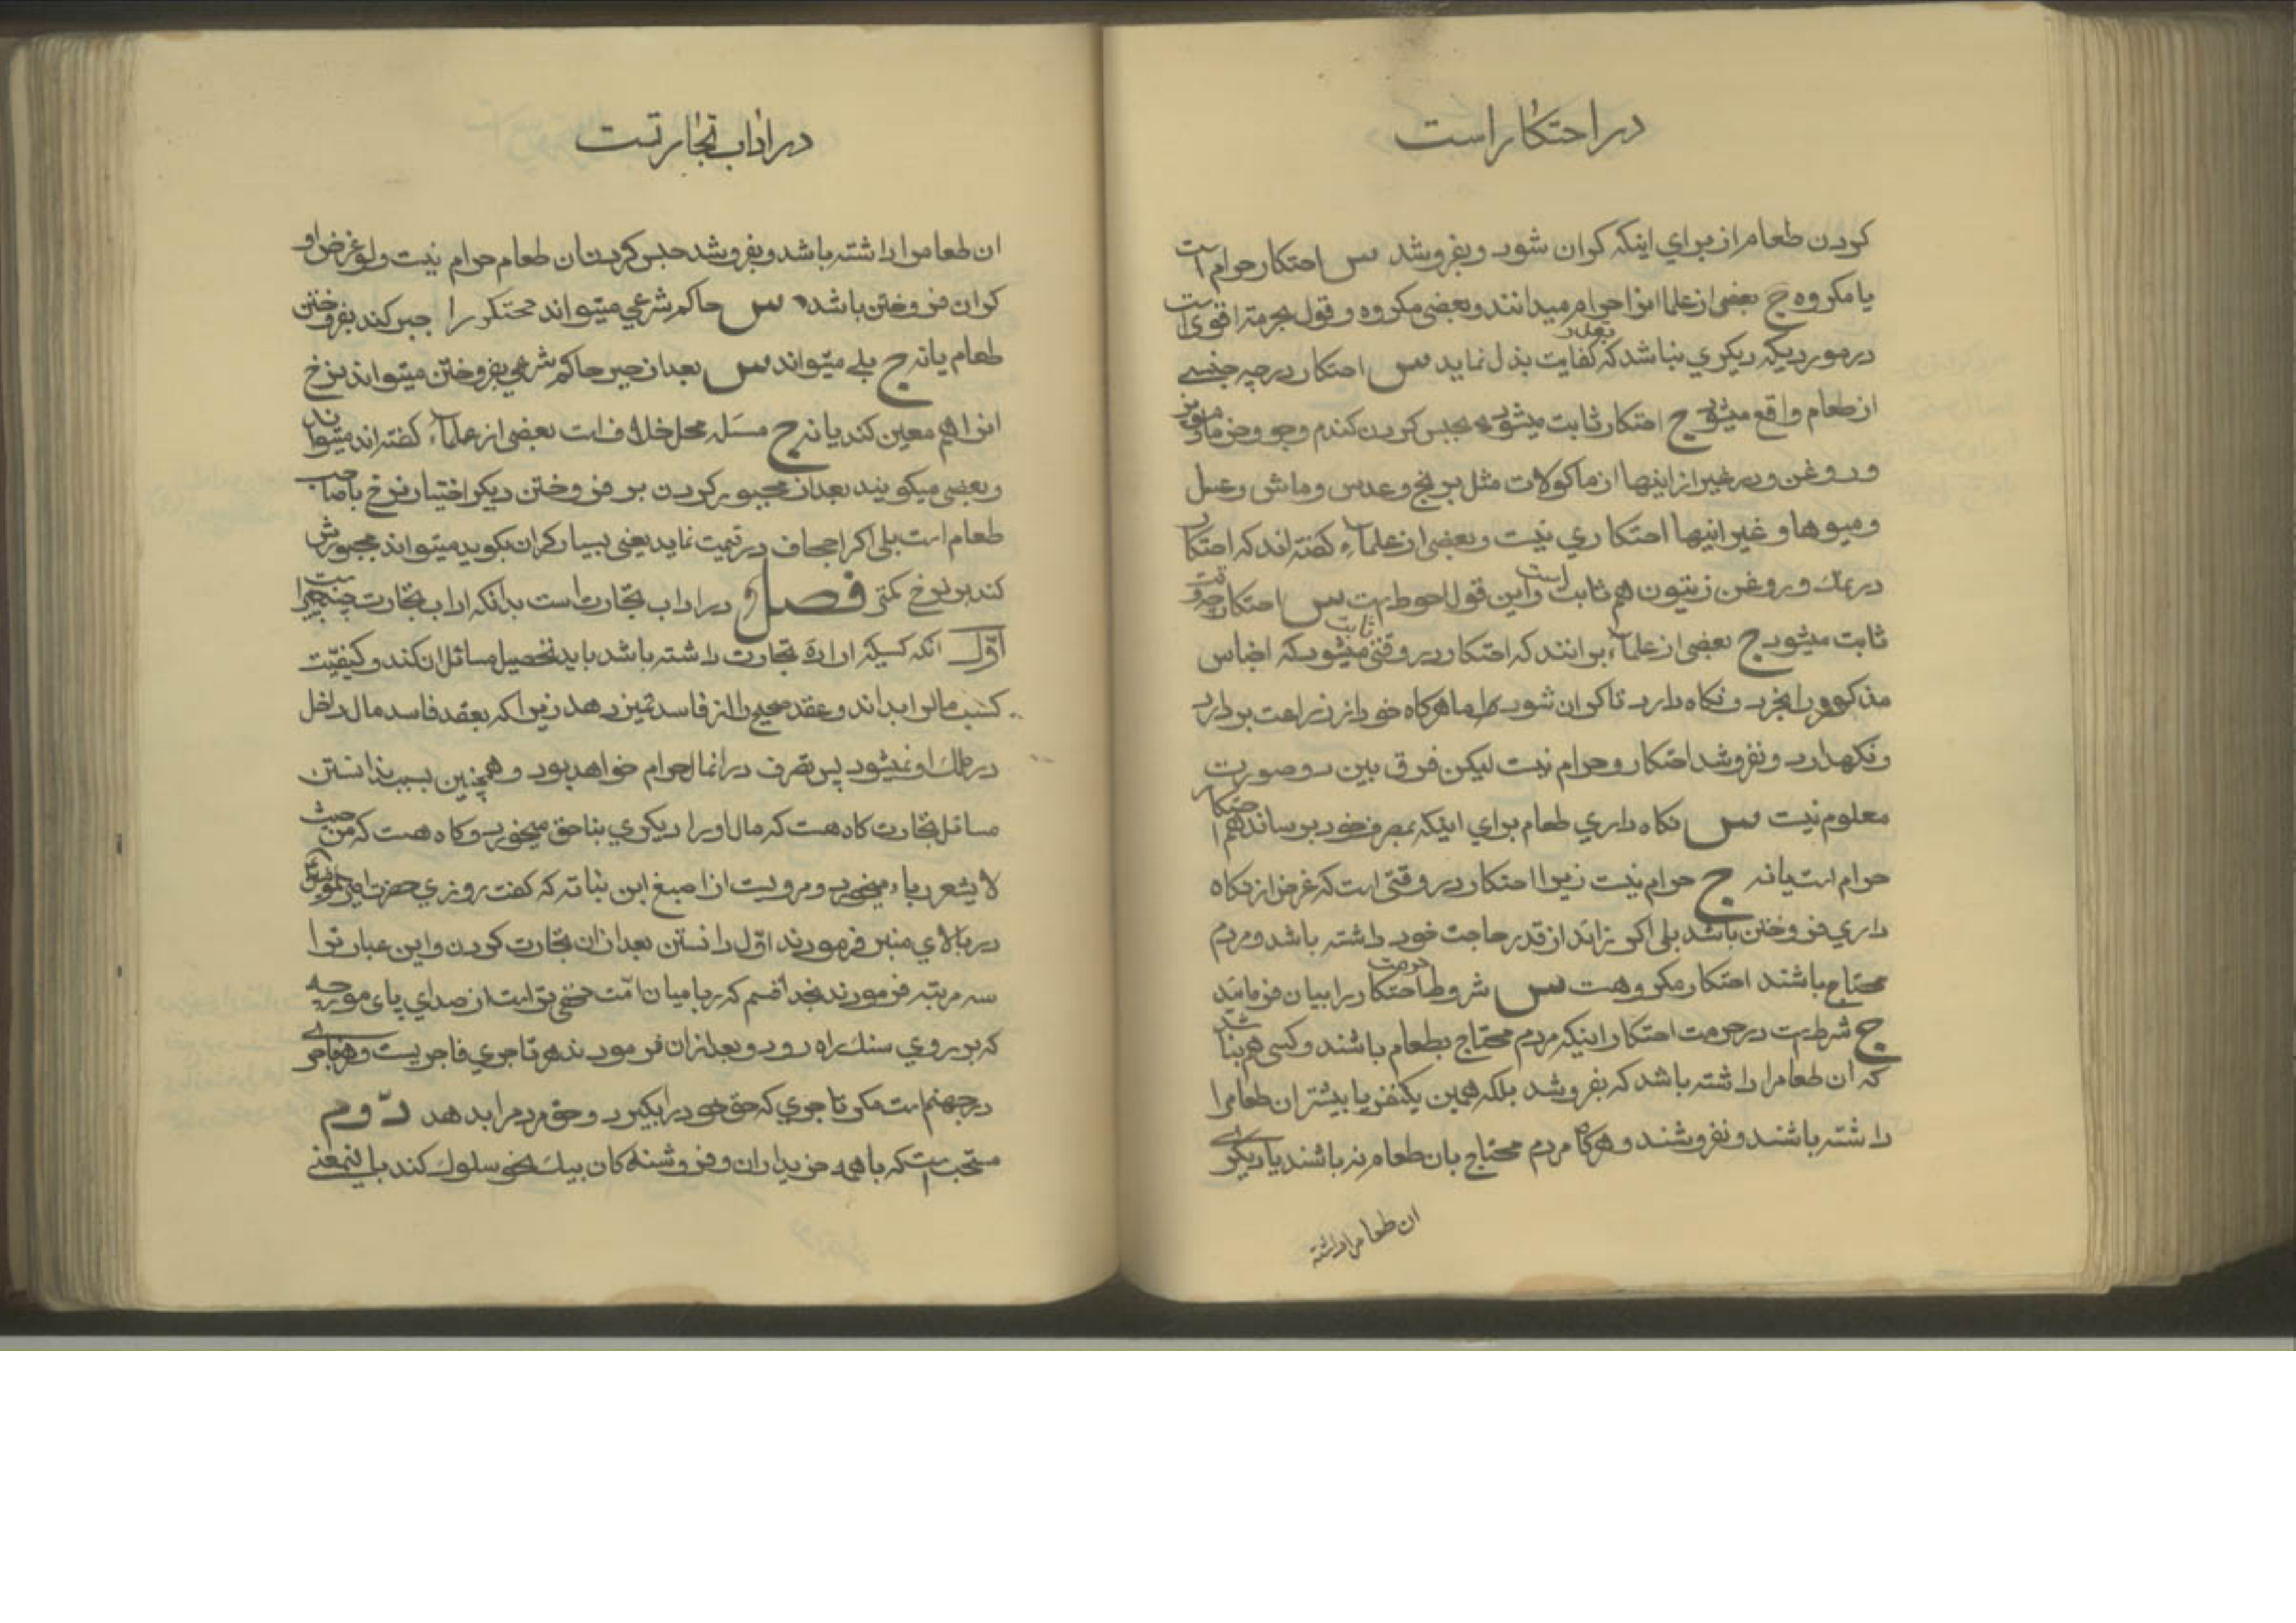 در احتکار است
کردن طعام از براي اینکه کران شود و بفروشد س احتکار حرام است
یا مکروه ج بعضی از علما انرا حرام میدانند و بعضی مکروه و قول بحرمة اقوی است
در موردیکه دیکري نباشد که بقدر کفایت بذل نماید س احتکار در چه جنسے
از طعام واقع میشود ج احتکار ثابت میشود بحبس کردن کندم و جو و خرما و مویز
و روغن و در غیر از اینها از ماکولات مثل برنج و عدس و ماش و عسل
و میوها و غیر اینها احتکاري نیست و بعضی از علماء کفته اند که احتکار
در نمك و روغن زیتون هم ثابت است و این قول احوط است س احتکار چه وقت
ثابت میشود ج بعضی از علماء برانند که احتکار در وقتی ثابت میشود که اجناس
مذکوره را بخرد و نکاه دارد تا کران شود اما هرکاه خود از زراعت بردارد
و نکهدارد و نفروشد احتکار و حرام نیست لیکن فرق بین دو صورت
معلوم نیست س نکاه داري طعام براي اینکه بمصرف خود برساند هم احتکار
حرام است یا نه ج حرام نیست زیرا احتکار در وقتی است که غرض از نکاه
داري فروختن باشد بلی اکر زائد از قدر حاجت خود داشته باشد و مردم
محتاج باشند احتکار مکروهست س شروط حرمت احتکار را بیان فرمائید
ج شرطست در حرمت احتکار اینکه مردم محتاج بطعام باشند و کسی هم نباشد
که ان طعامرا داشته باشد که بفروشد بلکه همین یکنفر یا بیشتر ان طعامرا
داشته باشند و نفروشند و هرکاه مردم محتاج بان طعام نه باشند یا دیکرے
ان طعامرا داشته
در اداب تجارتست
ان طعامرا داشته باشد و بفروشد حبس کردن ان طعام حرام نیست ولو غرض او
کران فروختن باشد س حاکم شرعي میتواند محتکر را جبر کند بفروختن
طعام یا نه ج بلے میتواند س بعد از جبر حاکم شرعي بفروختن میتواند نرخ
انرا هم معین کند یا نه ج مسئله محل خلاف است بعضی از علماء کفته اند میتواند
و بعضی میکویند بعد از مجبور کردن بر فروختن دیکر اختیار نرخ با صاحب
طعام است بلی اکر اجحاف در قیمت نماید یعنی بسیار کران بکوید میتواند مجبورش
کند بر نرخ کمتر فصل در اداب تجارت است بدانکه اداب تجارت چند چیز است
اوّل انکه کسیکه ارادهٔ تجارت داشته باشد باید تحصیل مسائل ان کند و کیفیّت
کسب مالرا بداند و عقد صحیح را از فاسد تمیز دهد زیرا که بعقد فاسد مال داخل
در ملك او نمیشود پس تصرف در انمال حرام خواهد بود و همچنین بسبب ندانستن
مسائل تجارت کاه هست که مال او را دیکري بناحق میخورد و کاه هست که من حیث
لا یشعر ربا میخورد و مرویست از اصبغ ابن نباته که کفت روزي حضرت امیر المؤمنین
در بالاي منبر فرمودند اوّل دانستن بعد از ان تجارت کردن و این عبارترا
سه مرتبه فرمودند بخدا قسم که ربا میان امّت مخفی تر است از صداي پاي مورچه
که بر روي سنك راه رود و بعد از ان فرمودند هر تاجري فاجریست و هر فاجرے
در جهنم است مکر تاجري که حق خود را بکیرد و حق مردم را بدهد دوّم
مستحب است که با همه خریداران و فروشنده کان بیك نحو سلوك کند باینمعنے